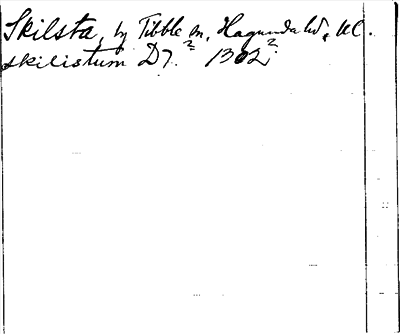 Skilsta, by Tibble sn, Hagunda hd, UC.
skilistum D7.? 1302?